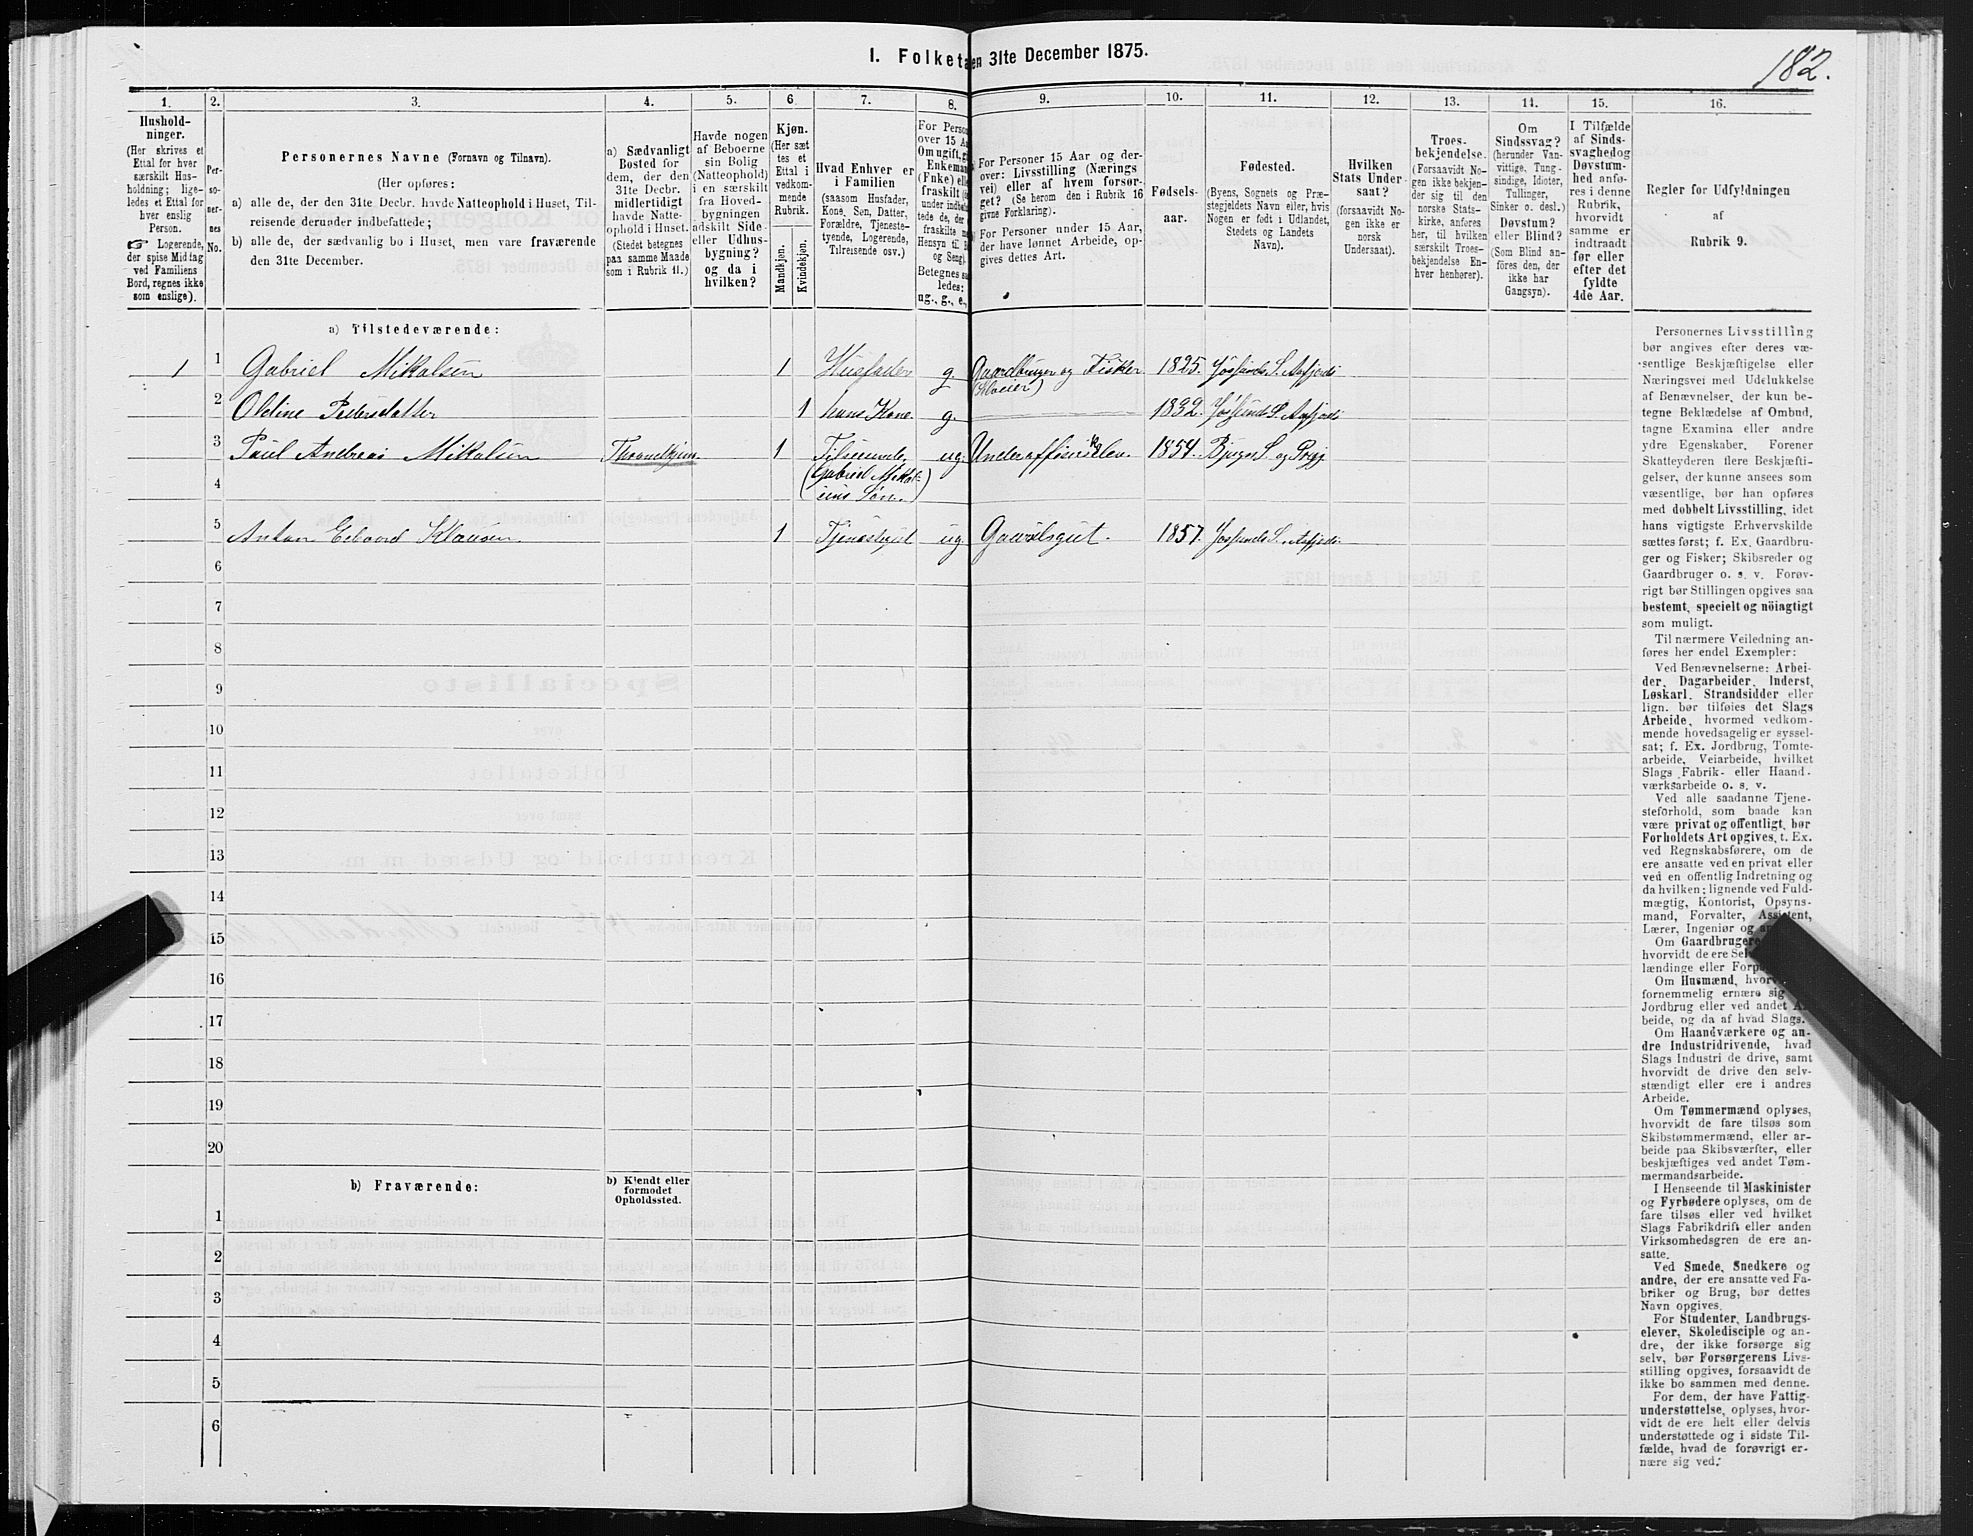 182.
I. Folketa en 31te December 1875.
1. 2. 3. 4. 5. 6. 7. 8. 9. 10. 11. 12. 13. 14. 15. 16.
Hushold-
ninger.
(Her skrives et
Ettal for hver
særskilt Hus-
holdning; lige-
ledes et Ettal for
hver enslig
Person.
☞ Logerende,
der spise Middag
ved Familiens
Bord, regnes ikke
som enslige).
Per-
so-
ner-
nes
No.
Personernes Navne (Fornavn og Tilnavn).
(Her opføres:
a) alle de, der den 31te Decbr. havde Natteophold i Huset, Til-
reisende derunder indbefattede;
b) alle de, der sædvanlig bo i Huset, men vare fraværende
den 31te December.
a) Sædvanligt
Bosted for
dem, der den
31te Decbr.
midlertidigt
havde Natte-
ophold i Huset.
(Stedet betegnes
paa samme Maade
som i Rubrik 11.)
Havde nogen
af Beboerne
sin Bolig
(Natteophold)
i en særskilt
fra Hoved-
bygningen
adskilt Side-
eller Udhus-
bygning?
og da i
hvilken?
Kjøn.
(Her sæt-
tes et
Ettal i
vedkom-
mende
Rubrik.
Mandkjøn.
Kvindekjøn.
Hvad Enhver er
i Familien
(saasom Husfader,
Kone, Søn, Datter,
Forældre, Tjeneste-
tyende, Logerende,
Tilreisende osv.)
For Person
over 15 A
Om ugift, g
Enkeman
(Fnke) elle
fraskilt
under indbe
tede de, der
fraskilte m
Hensyn til B
og Seng).
Betegnes sa
ledes:
ug., g., e.,
For Personer 15 Aar og der-
over: Livsstilling (Nærings-
vei) eller af hvem forsør-
get? (Se herom den i Rubrik 16
givne Forklaring).
For Personer under 15 Aar,
der have lønnet Arbeide, op-
gives dettes Art.
Fødsels-
aar.
Fødested.
(Byens, Sognets og Præ-
stegjeldets Navn eller, hvis
Nogen er født i Udlandet,
Stedets og Landets
Navn).
Hvilken
Stats Under-
saat?
(forsaavidt No-
gen ikke er
norsk
Undersaat).
Troes-
bekjendelse.
(Forsaavidt No-
gen ikke bekjen-
der sig til den
norske Stats-
kirke, anføres
her, til hvilken
særskilt Troes-
bekjendelse En-
hver henhører).
Om
Sindssvag?
(herunder Van-
vittige, Tung-
sindige, Idioter,
Tullinger,
Sinker o. desl.)
Døvstum?
eller Blind?
(Som Blind an-
føres den, der
ikke har
Gangsyn).
I Tilfælde
af Sinds-
svaghed og
Døvstum-
hed anfø-
res i denne
Rubrik,
hvorvidt
samme er
indtraadt
før eller
efter det
fyldte
4de Aar.
Regler for Udfyldningen
af
Rubrik 9.
a) Tilstedeværende:
1 1 Gabriel Mikalsen 1 Husfader g. Gaardbruger og Fisker 1825. Jøssunds S. Aafjord
2 Oldine Pedersdatter 1 hans Kone g. 1832. Jøssunds S. Aafjord
3 Paul Andreas Mikalsen Throndhjem. 1 Tilreisende ug. Underofficerselev. 1854.
4
5 Anton Edvard Klausen 1 Tjenestegut ug. Gaardsgut. 1857. Jøssunds S. Aafjord.
6
7
8
9
10
11
12
13
14
15
16
17
18
19
20
b) Fraværende:
b) Kjendt eller
formodet
Opholdssted.
1
2
3
4
5
6
Personernes Livsstilling
bør angives efter deres væ-
sentlige Beskjæftigelse eller
Næringsvei med Udelukkelse
af Benævnelser, der kun be-
tegne Beklædelse af Ombud,
tagne Examina eller andre
ydre Egenskaber. Forener
Skatteyderen flere Beskjæfti-
gelser, der kunne ansees som
væsentlige, bør han opføres
med dobbelt Livsstilling, idet
hans vigtigste Erhvervskilde
sættes først; f. Ex. Gaardbru-
ger og Fisker; Skibsreder og
Gaardbruger o. s. v. Forøv-
rigt bør Stillingen opgives saa
bestemt, specielt og nöiagtigt
som muligt.
Til nærmere Veiledning an-
føres her endel Exempler:
Ved Benævnelserne: Arbei-
der, Dagarbeider, Inderst,
Løskarl, Strandsidder eller
lign. bør tilføies det Slags
Arbeide, hvormed vedkom-
mende hovedsagelig er syssel-
sat; f. Ex. Jordbrug, Tomte-
arbeide, Veiarbeide, hvilket
Slags Fabrik- eller Haand-
værksarbeide o. s. v.
Ved alle saadanne Tjene-
steforhold, som baade kan
være privat og offentligt, bør
Forholdets Art opgives, t. Ex.
ved Regnskabsførere, om de
ere ansatte ved en privat eller
ved en offentlig Indretning og
da hvilken; lignende ved Fuld-
mægtig, Kontorist, Opsyns-
mand, Forvalter, Assistent,
Lærer, Ingeniør og
Om Gaardbrugere
hvorvidt de ere Sel
lændinge eller Forp
Om Husmænd, hvor
fornemmelig ernære sig
Jordbrug eller ved andet A
beide, og da af hvad Slags.
Om Haandværkere og an-
dre Industridrivende, hvad
Slags Industri de drive, samt
hvorvidt de drive den selv-
stændigt eller ere i andres
Arbeide.
Om Tømmermænd oplyses,
hvorvidt de fare tilsøs som
Skibstømmermænd, eller ar-
beide paa Skibsværfter, eller
beskjæftiges ved andet Tøm-
mermandsarbeide.
I Henseende til Maskinister
og Fyrbødere oplyses, om de
fare tilsøs eller ved hvilket
Slags Fabrikdrift eller anden
Virksomhedsgren de ere an-
satte.
Ved Smede, Snedkere og
andre, der ere ansatte ved Fa-
briker og Brug, bør dettes
Navn opgives.
For Studenter, Landbrugs-
elever, Skoledisciple og an-
dre, der ikke forsørge sig
selv, bør Forsørgerens Livs-
stilling opgives, forsaavidt de
ikke bo sammen med denne.
For dem, der have Fattig-
understøttelse, oplyses, hvor-
vidt de ere helt eller delvis
understøttede og i sidste Til-
fælde, hvad de forøvrigt er-
nære sig ved.